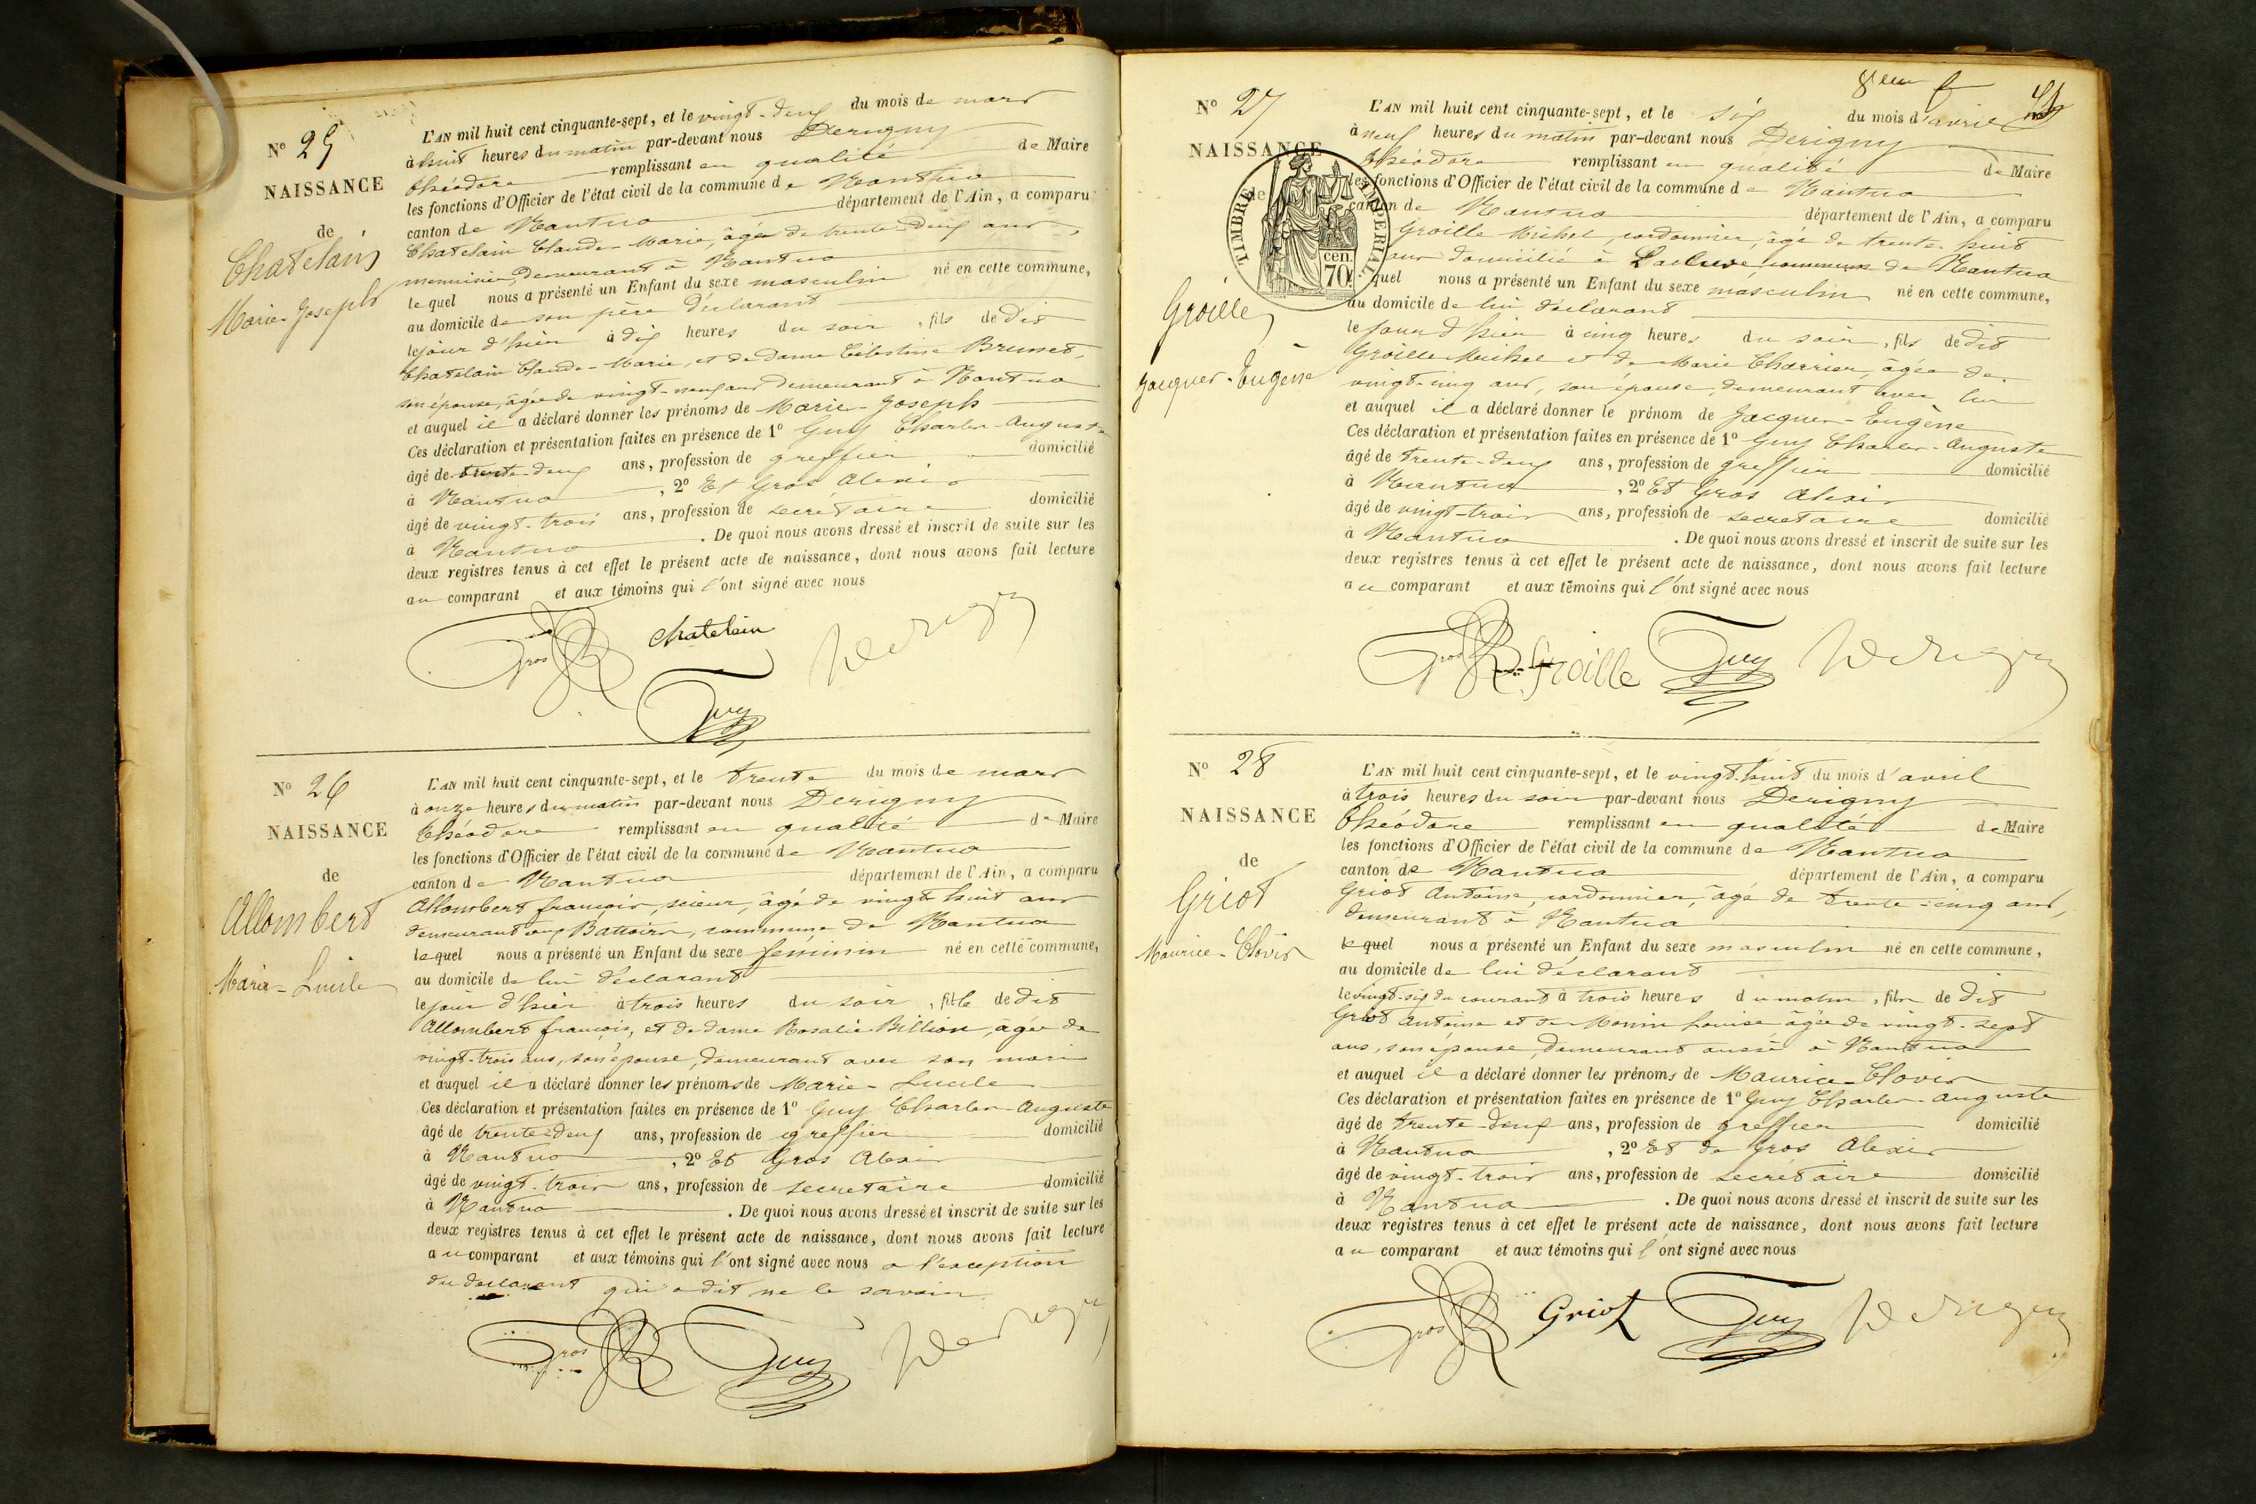 N° 25
NAISSANCE
de
Chatelain
Marie-Joseph
L'AN mil huit cent cinquante-sept, et le vingt-deux du mois de mars
à huit heures du matin par-devant nous Derigny
Théodore remplissant en qualité de Maire
les fonctions d'Officier de l'état civil de la commune de Nantua
canton de Nantua département de l'Ain, a comparu
Chatelain Claude-Marie, âgé de trente-deux ans,
menuisier, demeurant à Nantua
lequel nous a présenté un Enfant du sexe masculin né en cette commune,
au domicile de son père déclarant
le jour d'hier à dix heures du soir, fils de dit
Chatelain Claude-Marie, et de dame Célestine Brunet,
son épouse, âgée de vingt-neuf ans demeurant à Nantua
et auquel il a déclaré donner les prénoms de Marie-Joseph
Ces déclaration et présentation faites en présence de 1° Guy Charles-Auguste
âgé de trente-deux ans, profession de greffier domicilié
à Nantua, 2° Et Gros Alexis
âgé de vingt-trois ans, profession de secrétaire domicilié
à Nantua. De quoi nous avons dressé et inscrit de suite sur les
deux registres tenus à cet effet le présent acte de naissance, dont nous avons fait lecture
au comparant et aux témoins qui l'ont signé avec nous
Gros chatelain Derigny
Guy
N° 26
NAISSANCE
de
Allombert
Marie-Lucile
L'AN mil huit cent cinquante-sept, et le trente du mois de mars
à onze heures du matin par-devant nous Derigny
Théodore remplissant en qualité de Maire
les fonctions d'Officier de l'état civil de la commune de Nantua
canton de Nantua département de l'Ain, a comparu
Allombert françois, scieur, âgé de vingt huit ans
demeurant aux Battoirs, commune de Nantua
lequel nous a présenté un Enfant du sexe féminin né en cette commune,
au domicile de lui déclarant
le jour d'hier à trois heures du soir, fille de dit
Allombert françois, et de dame Rosalie Billion, âgée de
vingt-trois ans, son épouse, demeurant avec son mari
et auquel il a déclaré donner les prénoms de Marie-Lucile
Ces déclaration et présentation faites en présence de 1° Guy Charles-Auguste
âgé de trente-deux ans, profession de greffier domicilié
à Nantua, 2° Et Gros Alexis
âgé de vingt-trois ans, profession de secretaire domicilié
à Nantua. De quoi nous avons dressé et inscrit de suite sur les
deux registres tenus à cet effet le présent acte de naissance, dont nous avons fait lecture
au comparant et aux témoins qui l'ont signé avec nous a l'exception
du declarant qui a dit ne le savoir
Gros Guy Derigny
N° 27
NAISSANCE
de
TIMBRE IMPERIAL
70 cen.
Groille
Jacques-Eugène
L'AN mil huit cent cinquante-sept, et le six du mois d'avril
à neuf heures du matin par-devant nous Derigny
Théodore remplissant en qualité de Maire
les fonctions d'Officier de l'état civil de la commune de Nantua
canton de Nantua département de l'Ain, a comparu
Groille Michel, cordonnier, âgé de trente-huit
ans domicilié à Lacluse commune de Nantua
quel nous a présenté un Enfant du sexe masculin né en cette commune,
au domicile de lui déclarant
le jour d'hier à cinq heures du soir, fils de dit
Groille Michel et de Marie Charrier, âgée de
vingt-cinq ans, son épouse, demeurant avec lui
et auquel il a déclaré donner le prénom de Jacques-Eugène
Ces déclaration et présentation faites en présence de 1° Guy Charles-Auguste
âgé de trente-deux ans, profession de greffier domicilié
à Nantua, 2° Et Gros Alexis
âgé de vingt-trois ans, profession de secretaire domicilié
à Nantua. De quoi nous avons dressé et inscrit de suite sur les
deux registres tenus à cet effet le présent acte de naissance, dont nous avons fait lecture
au comparant et aux témoins qui l'ont signé avec nous
Gros Groille Guy Derigny
N° 28
NAISSANCE
de
Griot
Maurice-Clovis
L'AN mil huit cent cinquante-sept, et le vingt-huit du mois d'avril
à trois heures du soir par-devant nous Derigny
Théodore remplissant en qualité de Maire
les fonctions d'Officier de l'état civil de la commune de Nantua
canton de Nantua département de l'Ain, a comparu
Griot Antoine, cordonnier, âgé de trente-cinq ans,
demeurant à Nantua
lequel nous a présenté un Enfant du sexe masculin né en cette commune,
au domicile de lui déclarant
le vingt-six du courant à trois heures du matin, fils de dit
Griot Antoine et de Monin Louise âgée de vingt-sept
ans, son épouse, demeurant aussi à Nantua
et auquel il a déclaré donner les prénoms de Maurice-Clovis
Ces déclaration et présentation faites en présence de 1° Guy Charles-Auguste
âgé de trente-deux ans, profession de greffier domicilié
à Nantua, 2° Et de Gros Alexis
âgé de vingt-trois ans, profession de secrétaire domicilié
à Nantua. De quoi nous avons dressé et inscrit de suite sur les
deux registres tenus à cet effet le présent acte de naissance, dont nous avons fait lecture
au comparant et aux témoins qui l'ont signé avec nous
Gros Griot Guy Derigny